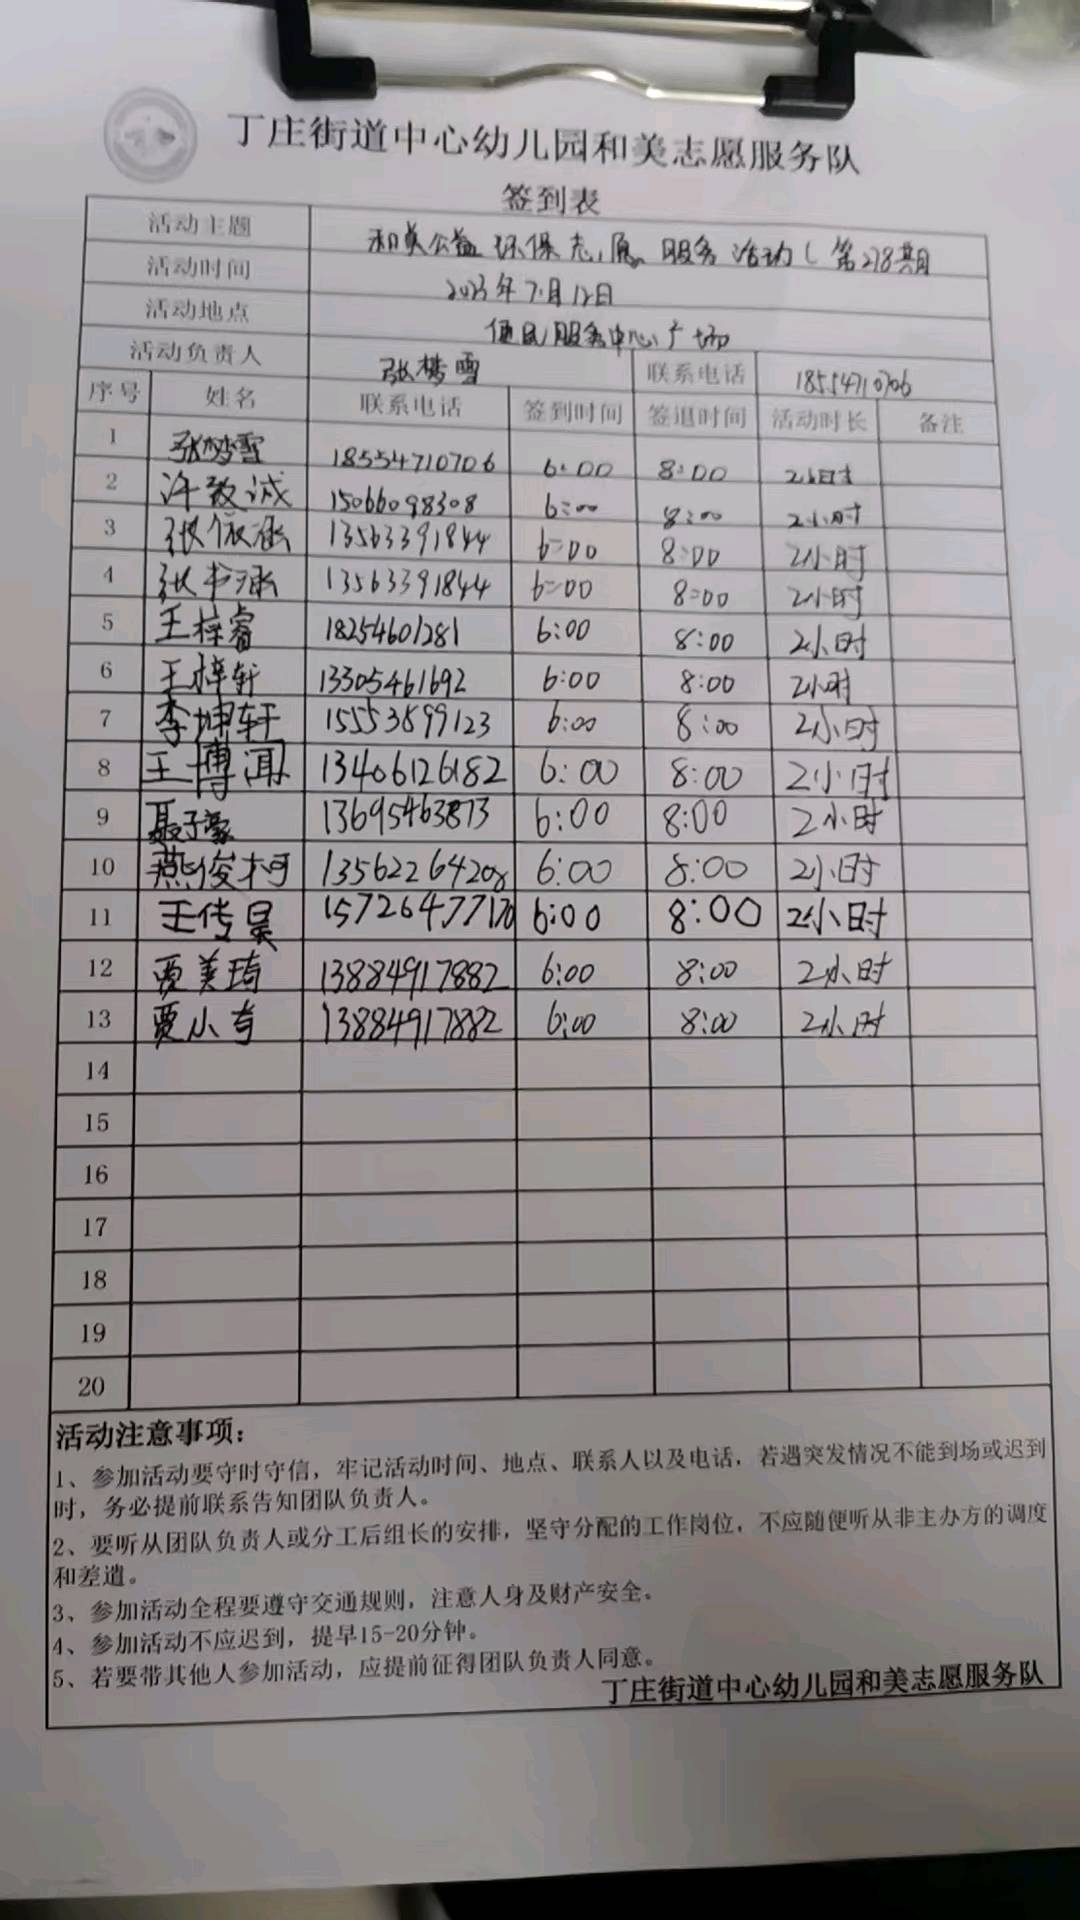 丁庄街道中心幼儿园和美志愿服务队
签到表
活动主题 和美公益 环保志愿 服务活动(第278期
活动时间 2023年7月12日
活动地点 便民服务中心广场
活动负责人 张梦雪 联系电话 18554710706
序号 姓名 联系电话 签到时间 签退时间 活动时长 备注
1 张梦雪 18554710706 6:00 8:00 2小时
2 许致诚 15066098308 6:00 8:00 2小时
3 张依涵 13563391844 6:00 8:00 2小时
4 张书涵 13563391844 6:00 8:00 2小时
5 王梓睿 18254601281 6:00 8:00 2小时
6 王梓轩 13305461692 6:00 8:00 2小时
7 李坤轩 15553899123 6:00 8:00 2小时
8 王博闻 13406126182 6:00 8:00 2小时
9 聂子豪 13695463873 6:00 8:00 2小时
10 燕俊柯 13562264208 6:00 8:00 2小时
11 王传昊 15726477170 6:00 8:00 2小时
12 贾美琦 13884917882 6:00 8:00 2小时
13 贾小奇 13884917882 6:00 8:00 2小时
14
15
16
17
18
19
20
活动注意事项：
1、参加活动要守时守信，牢记活动时间、地点、联系人以及电话，若遇突发情况不能到场或迟到
时，务必提前联系告知团队负责人。
2、要听从团队负责人或分工后组长的安排，坚守分配的工作岗位，不应随便听从非主办方的调度
和差遣。
3、参加活动全程要遵守交通规则，注意人身及财产安全。
4、参加活动不应迟到，提早15-20分钟。
5、若要带其他人参加活动，应提前征得团队负责人同意。
丁庄街道中心幼儿园和美志愿服务队